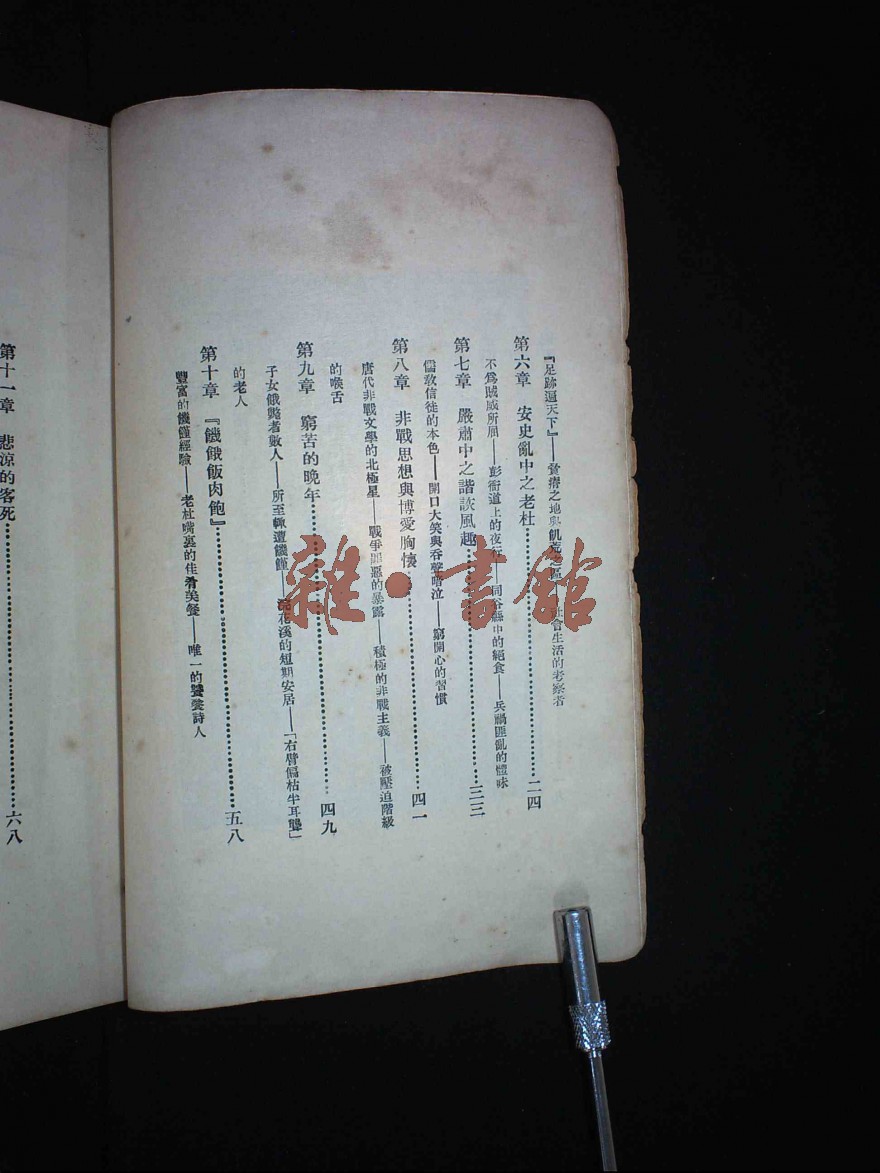 『足跡遍天下』——瘴癘之地與飢荒之區——社會生活的考察者
第六章 安史亂中之老杜……二四
不爲賊威所屈——彭衙道上的夜行——同谷縣中的絕食——兵禍匪亂的體味
第七章 嚴肅中之諧詼風趣……三三
儒教信徒的本色——開口大笑與吞聲暗泣——窮開心的習慣
第八章 非戰思想與博愛胸懷……四一
唐代非戰文學的北極星——戰爭罪惡的暴露——積極的非戰主義——被壓迫階級
的喉舌
第九章 窮苦的晚年……四九
子女餓斃者數人——所至輒遭饑饉——浣花溪的短期安居——「右臂偏枯半耳聾」
的老人
第十章 『饑餓飯肉飽』……五八
豐富的饑饉經驗——老杜嘴裏的佳肴美餐——唯一的饕餮詩人
第十一章 悲涼的客死……六八
雜·書館